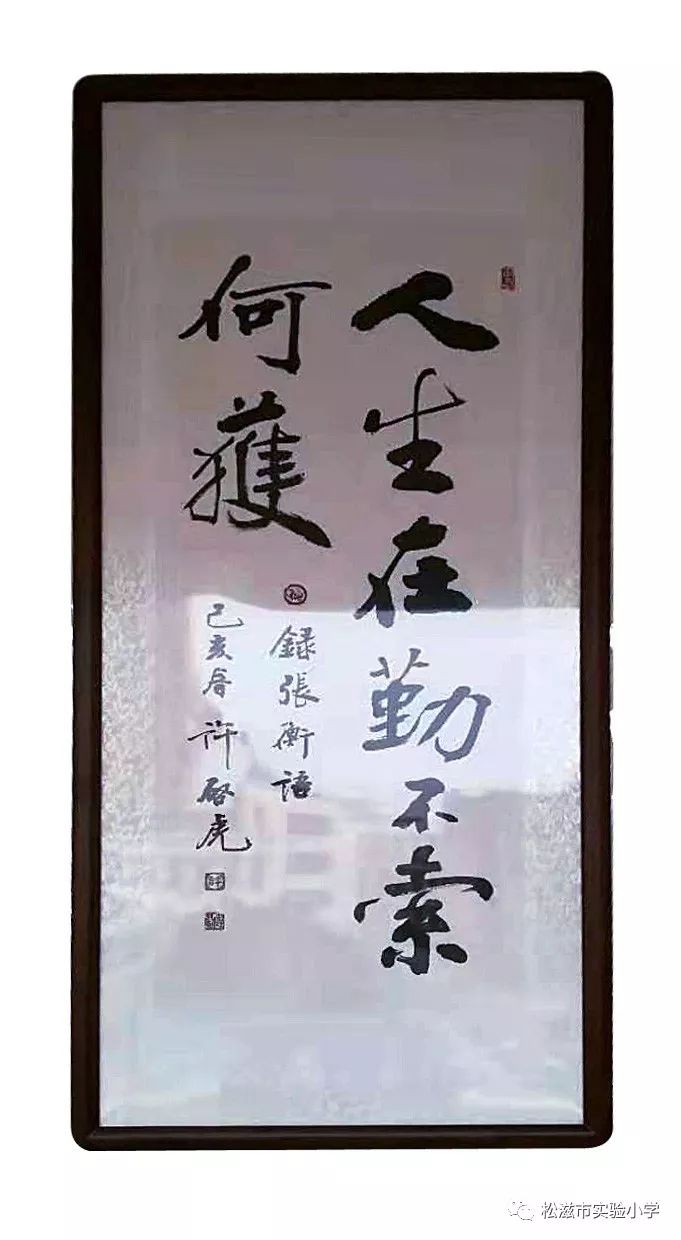 人生在勤不索
何獲
錄張衡語
己亥春 许啓虎
松滋市实验小学